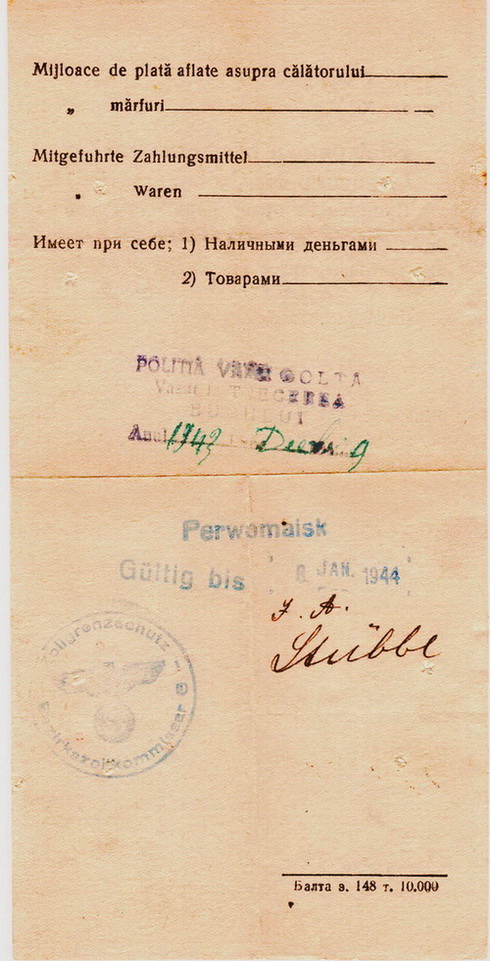 Mijloace de plată aflate asupra călătorului
„ mărfuri
Mitgefuhrte Zahlungsmittel
„ Waren
Имеет при себе; 1) Наличными деньгами
2) Товарами
POLITIA GOLTA
BUGULUI
Anul 1943 9
Perwomaisk
Gültig bis 8 JAN. 1944
J. A.
Stübbe
Zollgrenzschutz
Bezirkszollkommissar
Балта з. 148 т. 10.000